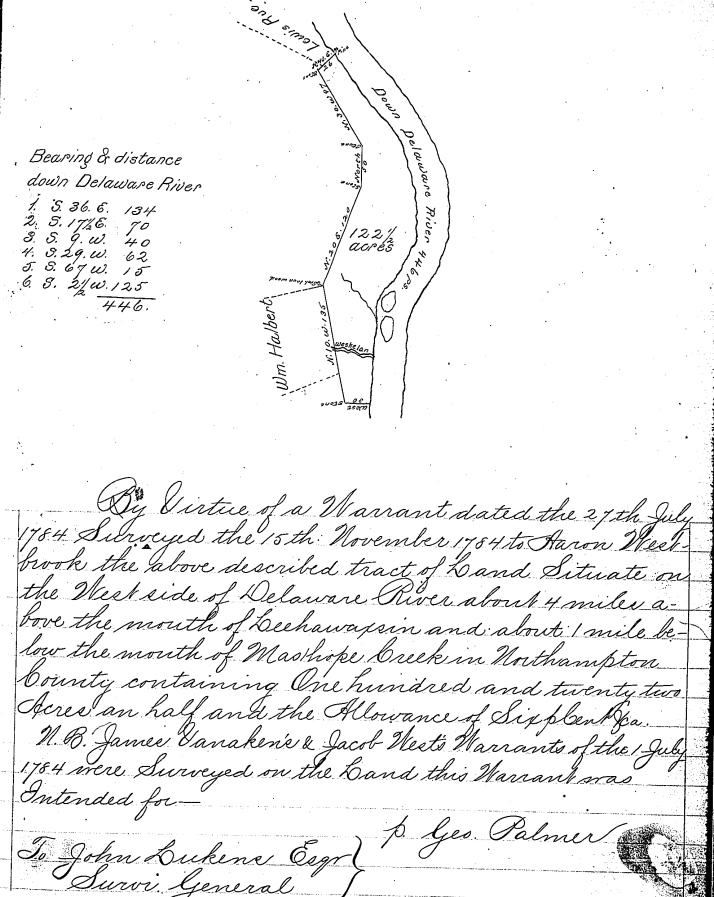 Lewis Rue
Down Delaware River 446 ps.
Bearing & distance
down Delaware River
1. S. 36. E. 134
2. S. 17½ E. 70
3. S. 9. W. 40
4. S. 29. W. 62
5. S. 67 W. 15
6. S. 2½ W. 125
446.
North
50
N. 20 E. 120
122½
acres
Wm. Halbert
N. 10. W. 135
Westcolan
Stone
West
By Virtue of a Warrant dated the 27th July
1784 Surveyed the 15th November 1784 to Aaron West-
brook the above described tract of Land Situate on
the West side of Delaware River about 4 miles a-
bove the mouth of Leehawaxsin and about 1 mile be-
low the mouth of Mashhope Creek in Northampton
County containing One hundred and twenty two
Acres an half and the Allowance of Six p Cent &ca.
N.B. James Vanaken's & Jacob West's Warrants of the 1 July
1784 were Surveyed on the Land this Warrant was
Intended for—
p. Geo. Palmer
To John Lukens Esqr
Survr. General